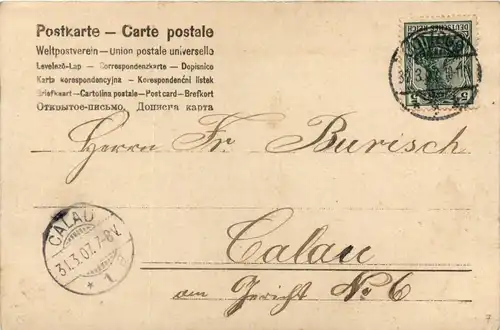 Postkarte – Carte postale
Weltpostverein – Union postale universelle
Levelező-Lap – Correspondenzkarte – Dopisnice
Karta korespondencyjna – Korespondenční lístek
Briefkaart – Cartolina postale – Post card – Brefkort
Открытое письмо. Дописна карта
DEUTSCHES REICH
5 5
Herrn Fr. Burisch
CALAU
31.3.07.7-8V.
* 1 a
Calau
am Gericht No 6
7